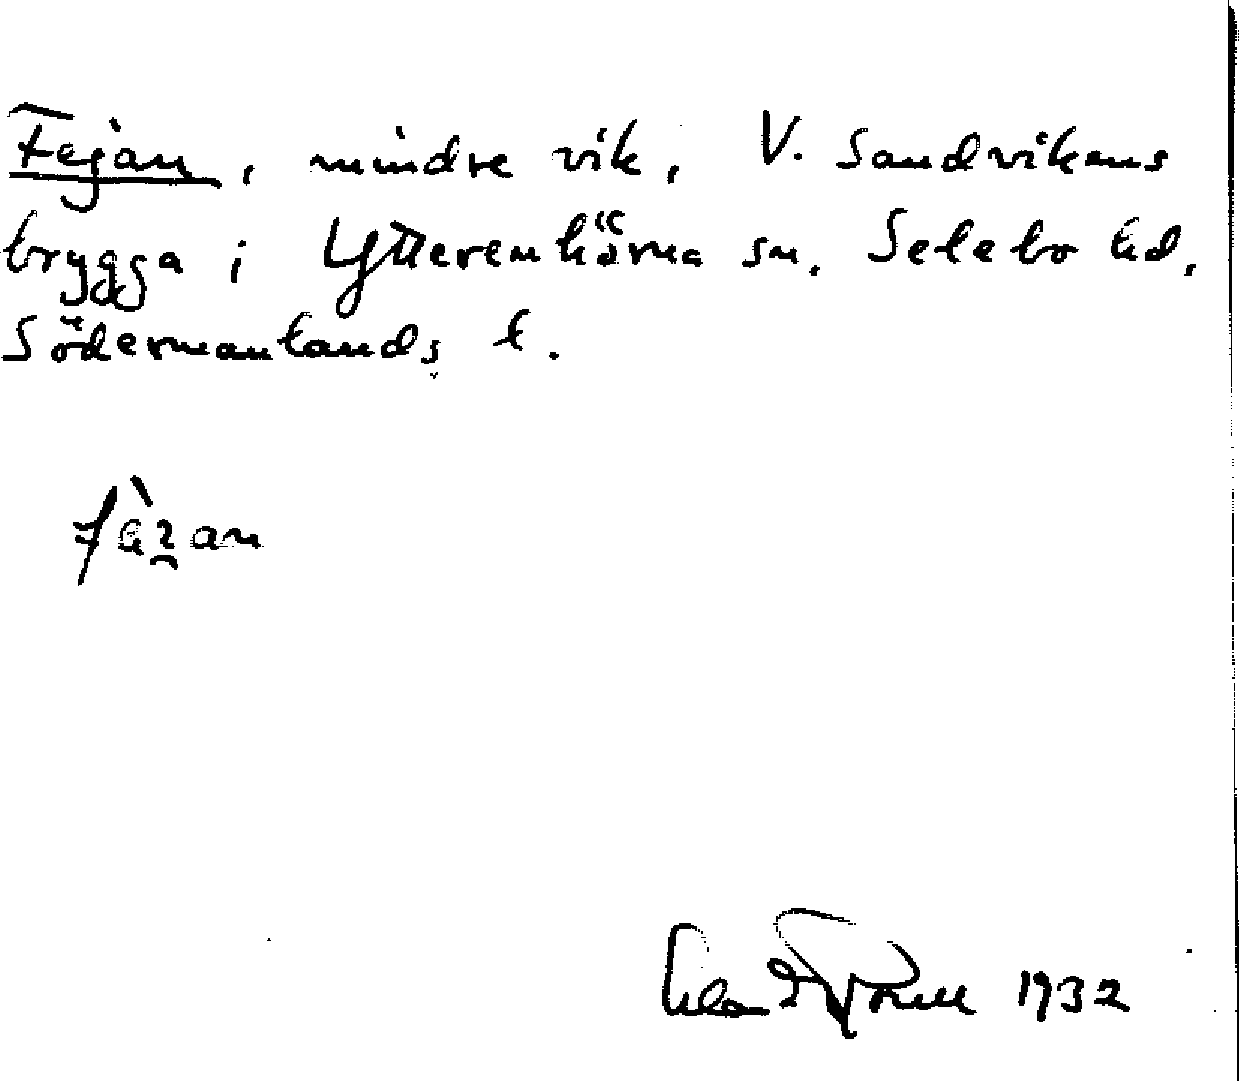 Fejan, mindre vik, V. Sandvikens
brygga i Ytterenhörna sn. Selebo hd,
Södermanlands l.
1932